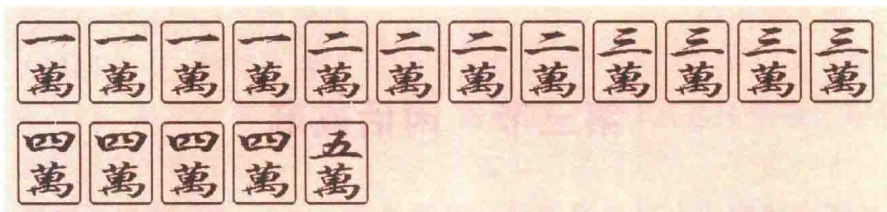 一萬 一萬 一萬 一萬 二萬 二萬 二萬 二萬 三萬 三萬 三萬 三萬
四萬 四萬 四萬 四萬 五萬